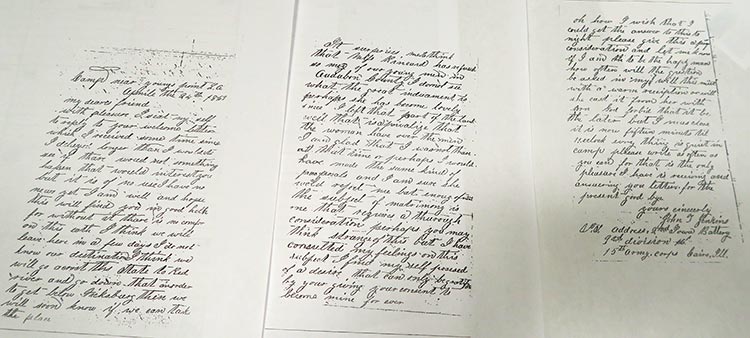 Camp near Youngs point La
April the 24th 1863
my dearest friend
with pleasure I seat my self
to reply to your welcome letter
which I received some time since
I delayed longer than I wanted to
see if thare would not something
happen that would interest you
but it is no use I have no
news yet I am well and hope
this will find you in good helth
for without it there is no comfor
on this eath I think we will
leave here in a few days I do not
know our destination I think we
will go across this State to Red
river and go down that in order
to get below Vicksburg then we
will soon know if we can take
the place
It surprises me to think
that Miss Kincard has refused
so many of our many men in
Audabon County I do not see
what the great inducement is
perhaps she has become lovely
since I left that part of the land
well that is a privalige that
the woman have over the men
I am glad that I was not there
at that time or perhaps I would
have made the same kind of
proposals and I am sure she
would reject me but enoughf of this
the subject of matrimony is
one that requires a through
consideration perhaps you may
think strange of this but I have
consulted my feelings on this
subject I find my self posesed
of a desire that can only be gratified
by your giving your consent to
become mine for ever
oh how I wish that I
could get the answer to this to
night please give this a fair
consideration and let me know
if I am to be the happy man
how often will the question
be asked in my will this meet
with a warm reception or will
she cast it from her with
scorn God forbid that it be
the latter but I must close
it is now fifteen minuts till
11 oclock evry thing is quiet in
camp please write as often as
you can for that is the only
pleasure I have is receiving and
answering your letters for the
present good bye
yours sincerly
John T Jenkins
P.S. address 2nd Iowa Battery
division
15th army corps Cairo, Ill.